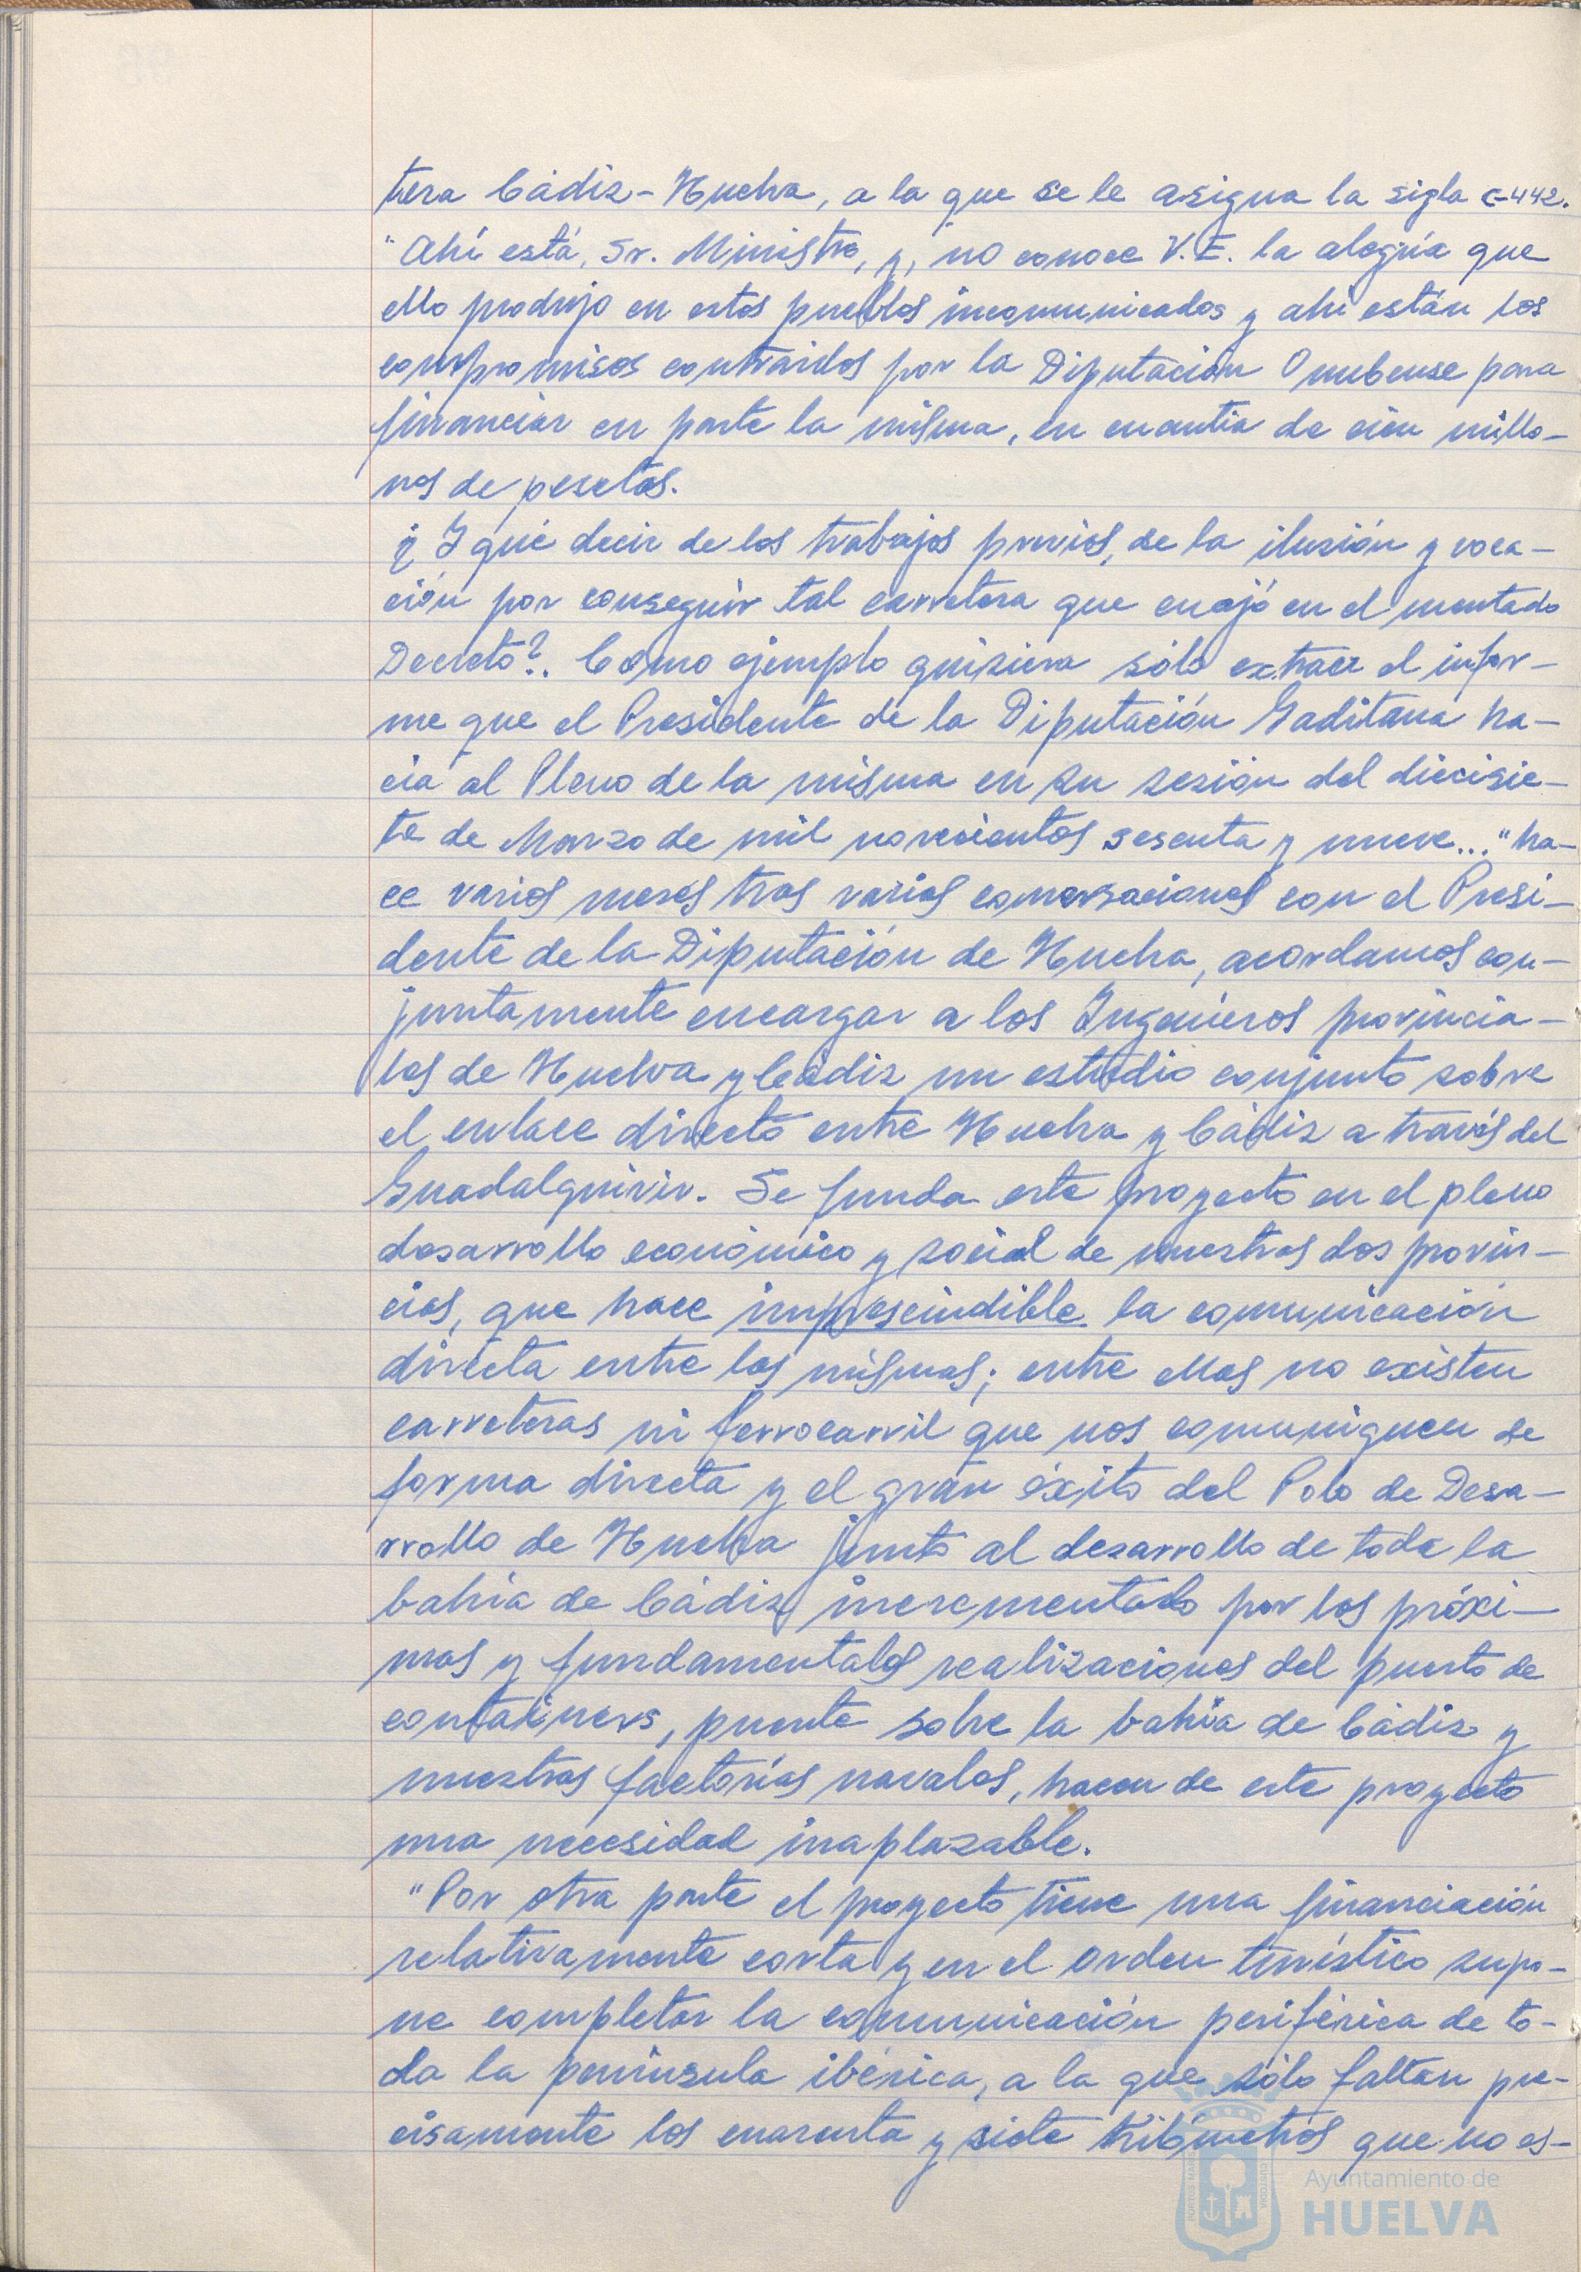 tera Cádiz-Huelva, a la que se le asigna la sigla C-442.
"Ahí está, Sr. Ministro, y, no conoce V.E. la alegría que
ello produjo en estos pueblos incomunicados y ahí están los
compromisos contraidos por la Diputación Onubense para
financiar en parte la misma, en cuantía de cien millo-
nes de pesetas.
¿Y qué decir de los trabajos previos, de la ilusión y voca-
ción por conseguir tal carretera que cuajó en el mentado
Decreto?. Como ejemplo quisiera sólo extraer el infor-
me que el Presidente de la Diputación Gaditana ha-
cía al Pleno de la misma en su sesión del diecisie-
te de Marzo de mil novecientos sesenta y nueve..." ha-
ce varios meses tras varias conversaciones con el Presi-
dente de la Diputación de Huelva, acordamos con-
juntamente encargar a los Ingenieros provincia-
les de Huelva y Cádiz un estudio conjunto sobre
el enlace directo entre Huelva y Cádiz a través del
Guadalquivir. Se funda este proyecto en el pleno
desarrollo económico y social de nuestras dos provin-
cias, que hace imprescindible la comunicación
directa entre las mismas; entre ellas no existen
carreteras ni ferrocarril que nos comuniquen de
forma directa y el gran éxito del Polo de Desa-
rrollo de Huelva junto al desarrollo de toda la
bahía de Cádiz incrementado por los próxi-
mas y fundamentales realizaciones del puerto de
containers, puente sobre la bahía de Cádiz y
nuestras factorías navales, hacen de este proyecto
una necesidad inaplazable.
"Por otra parte el proyecto tiene una financiación
relativamente corta y en el orden turístico supo-
ne completar la comunicación periférica de to-
da la península ibérica, a la que sólo faltan pre-
cisamente los cuarenta y siete kilómetros que no es-
Ayuntamiento de
HUELVA